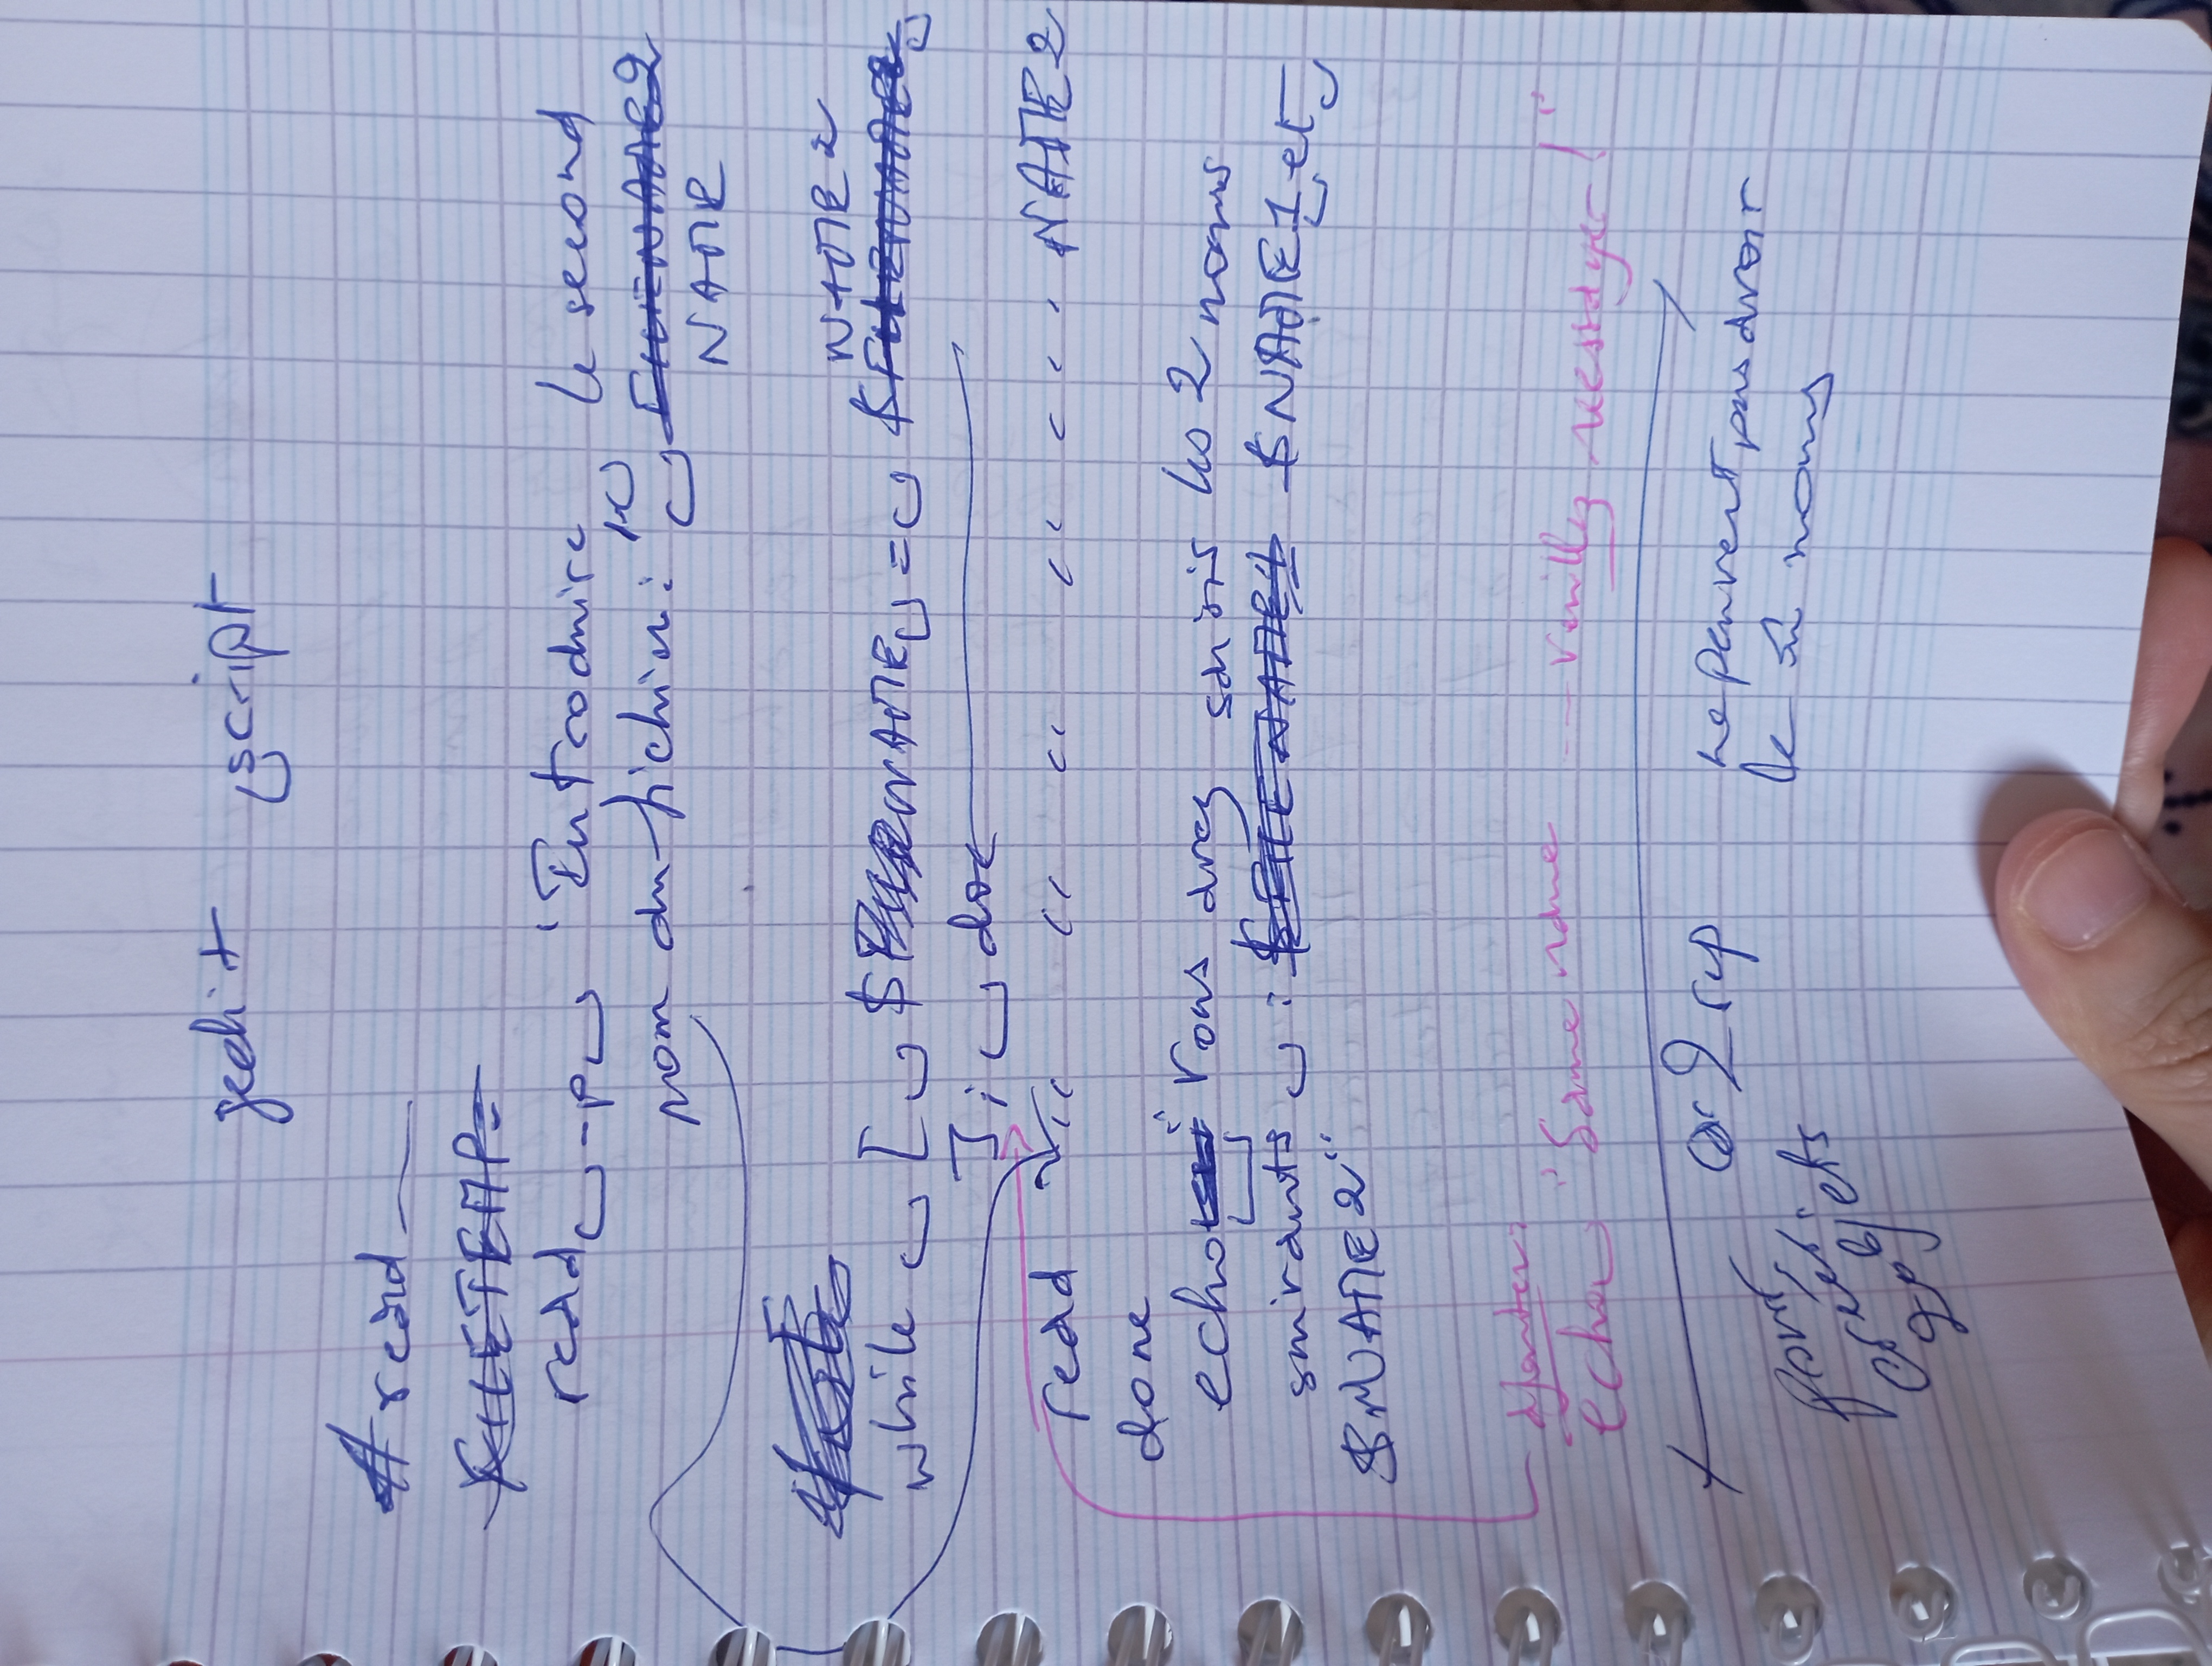 gedit script
# read
FILETEMP=
read -p "Introduire le second
nom du fichier : " FILENAME2
NAME
NAME2
while [ $NAME = $FILENAME2
] ; do
read " " " " " . . . NAME2
done
echo " Vous avez saisis les 2 noms
suivants : $FILENAME1 $NAME1 et
$NAME2"
ajouter :
echo "Same name --- veuillez réessayer !"
or 2 rep ne peuvent pas avoir
le m̂ noms
pour
créer
2 objets